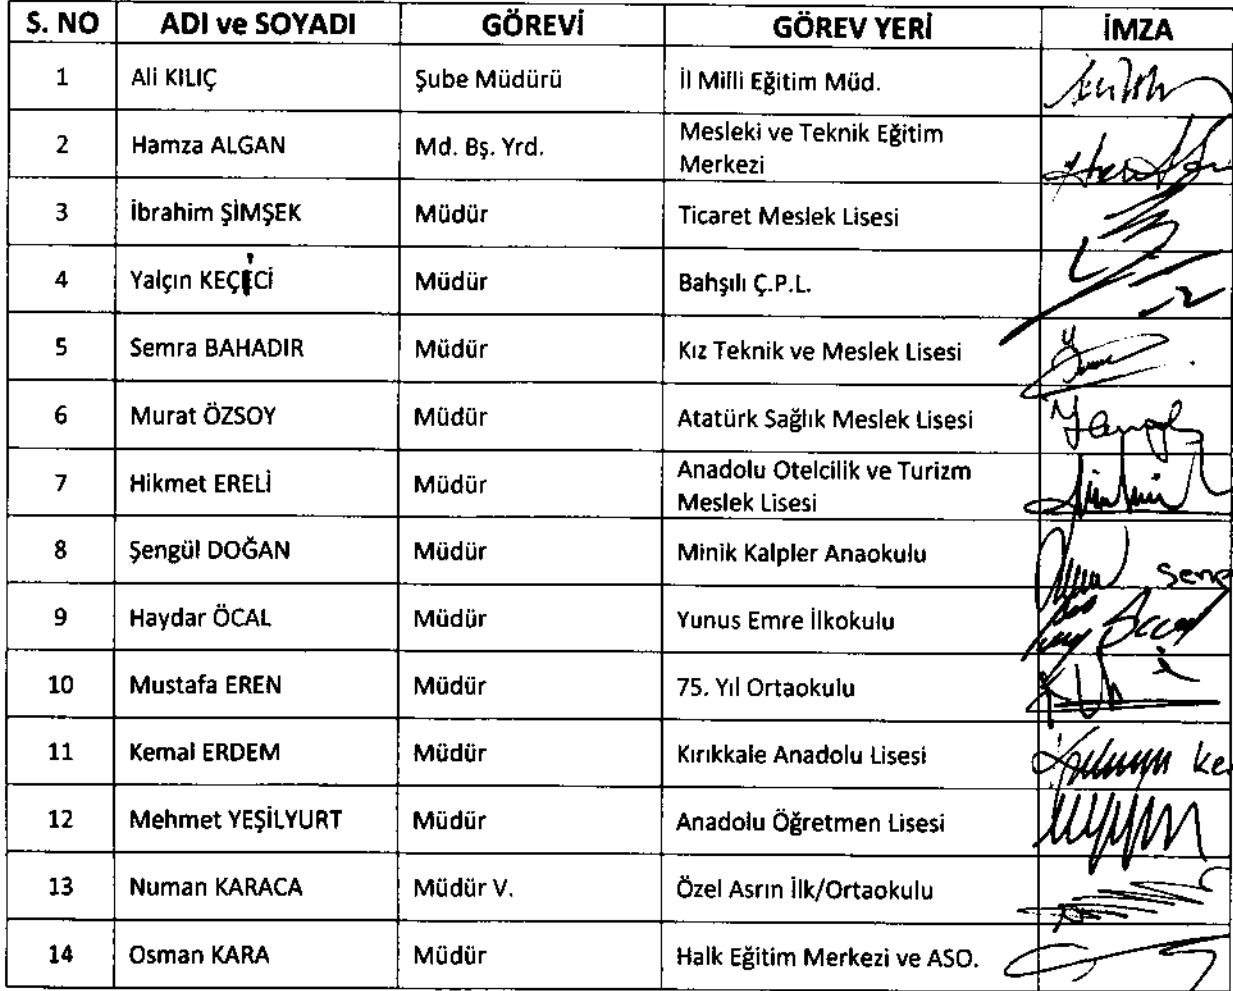 S. NO ADI ve SOYADI GÖREVİ GÖREV YERİ İMZA
1 Ali KILIÇ Şube Müdürü İl Milli Eğitim Müd.
2 Hamza ALGAN Md. Bş. Yrd. Mesleki ve Teknik Eğitim
Merkezi
3 İbrahim ŞİMŞEK Müdür Ticaret Meslek Lisesi
4 Yalçın KEÇİCİ Müdür Bahşılı Ç.P.L.
5 Semra BAHADIR Müdür Kız Teknik ve Meslek Lisesi
6 Murat ÖZSOY Müdür Atatürk Sağlık Meslek Lisesi
7 Hikmet ERELİ Müdür Anadolu Otelcilik ve Turizm
Meslek Lisesi
8 Şengül DOĞAN Müdür Minik Kalpler Anaokulu
9 Haydar ÖCAL Müdür Yunus Emre İlkokulu
10 Mustafa EREN Müdür 75. Yıl Ortaokulu
11 Kemal ERDEM Müdür Kırıkkale Anadolu Lisesi
12 Mehmet YEŞİLYURT Müdür Anadolu Öğretmen Lisesi
13 Numan KARACA Müdür V. Özel Asrın İlk/Ortaokulu
14 Osman KARA Müdür Halk Eğitim Merkezi ve ASO.